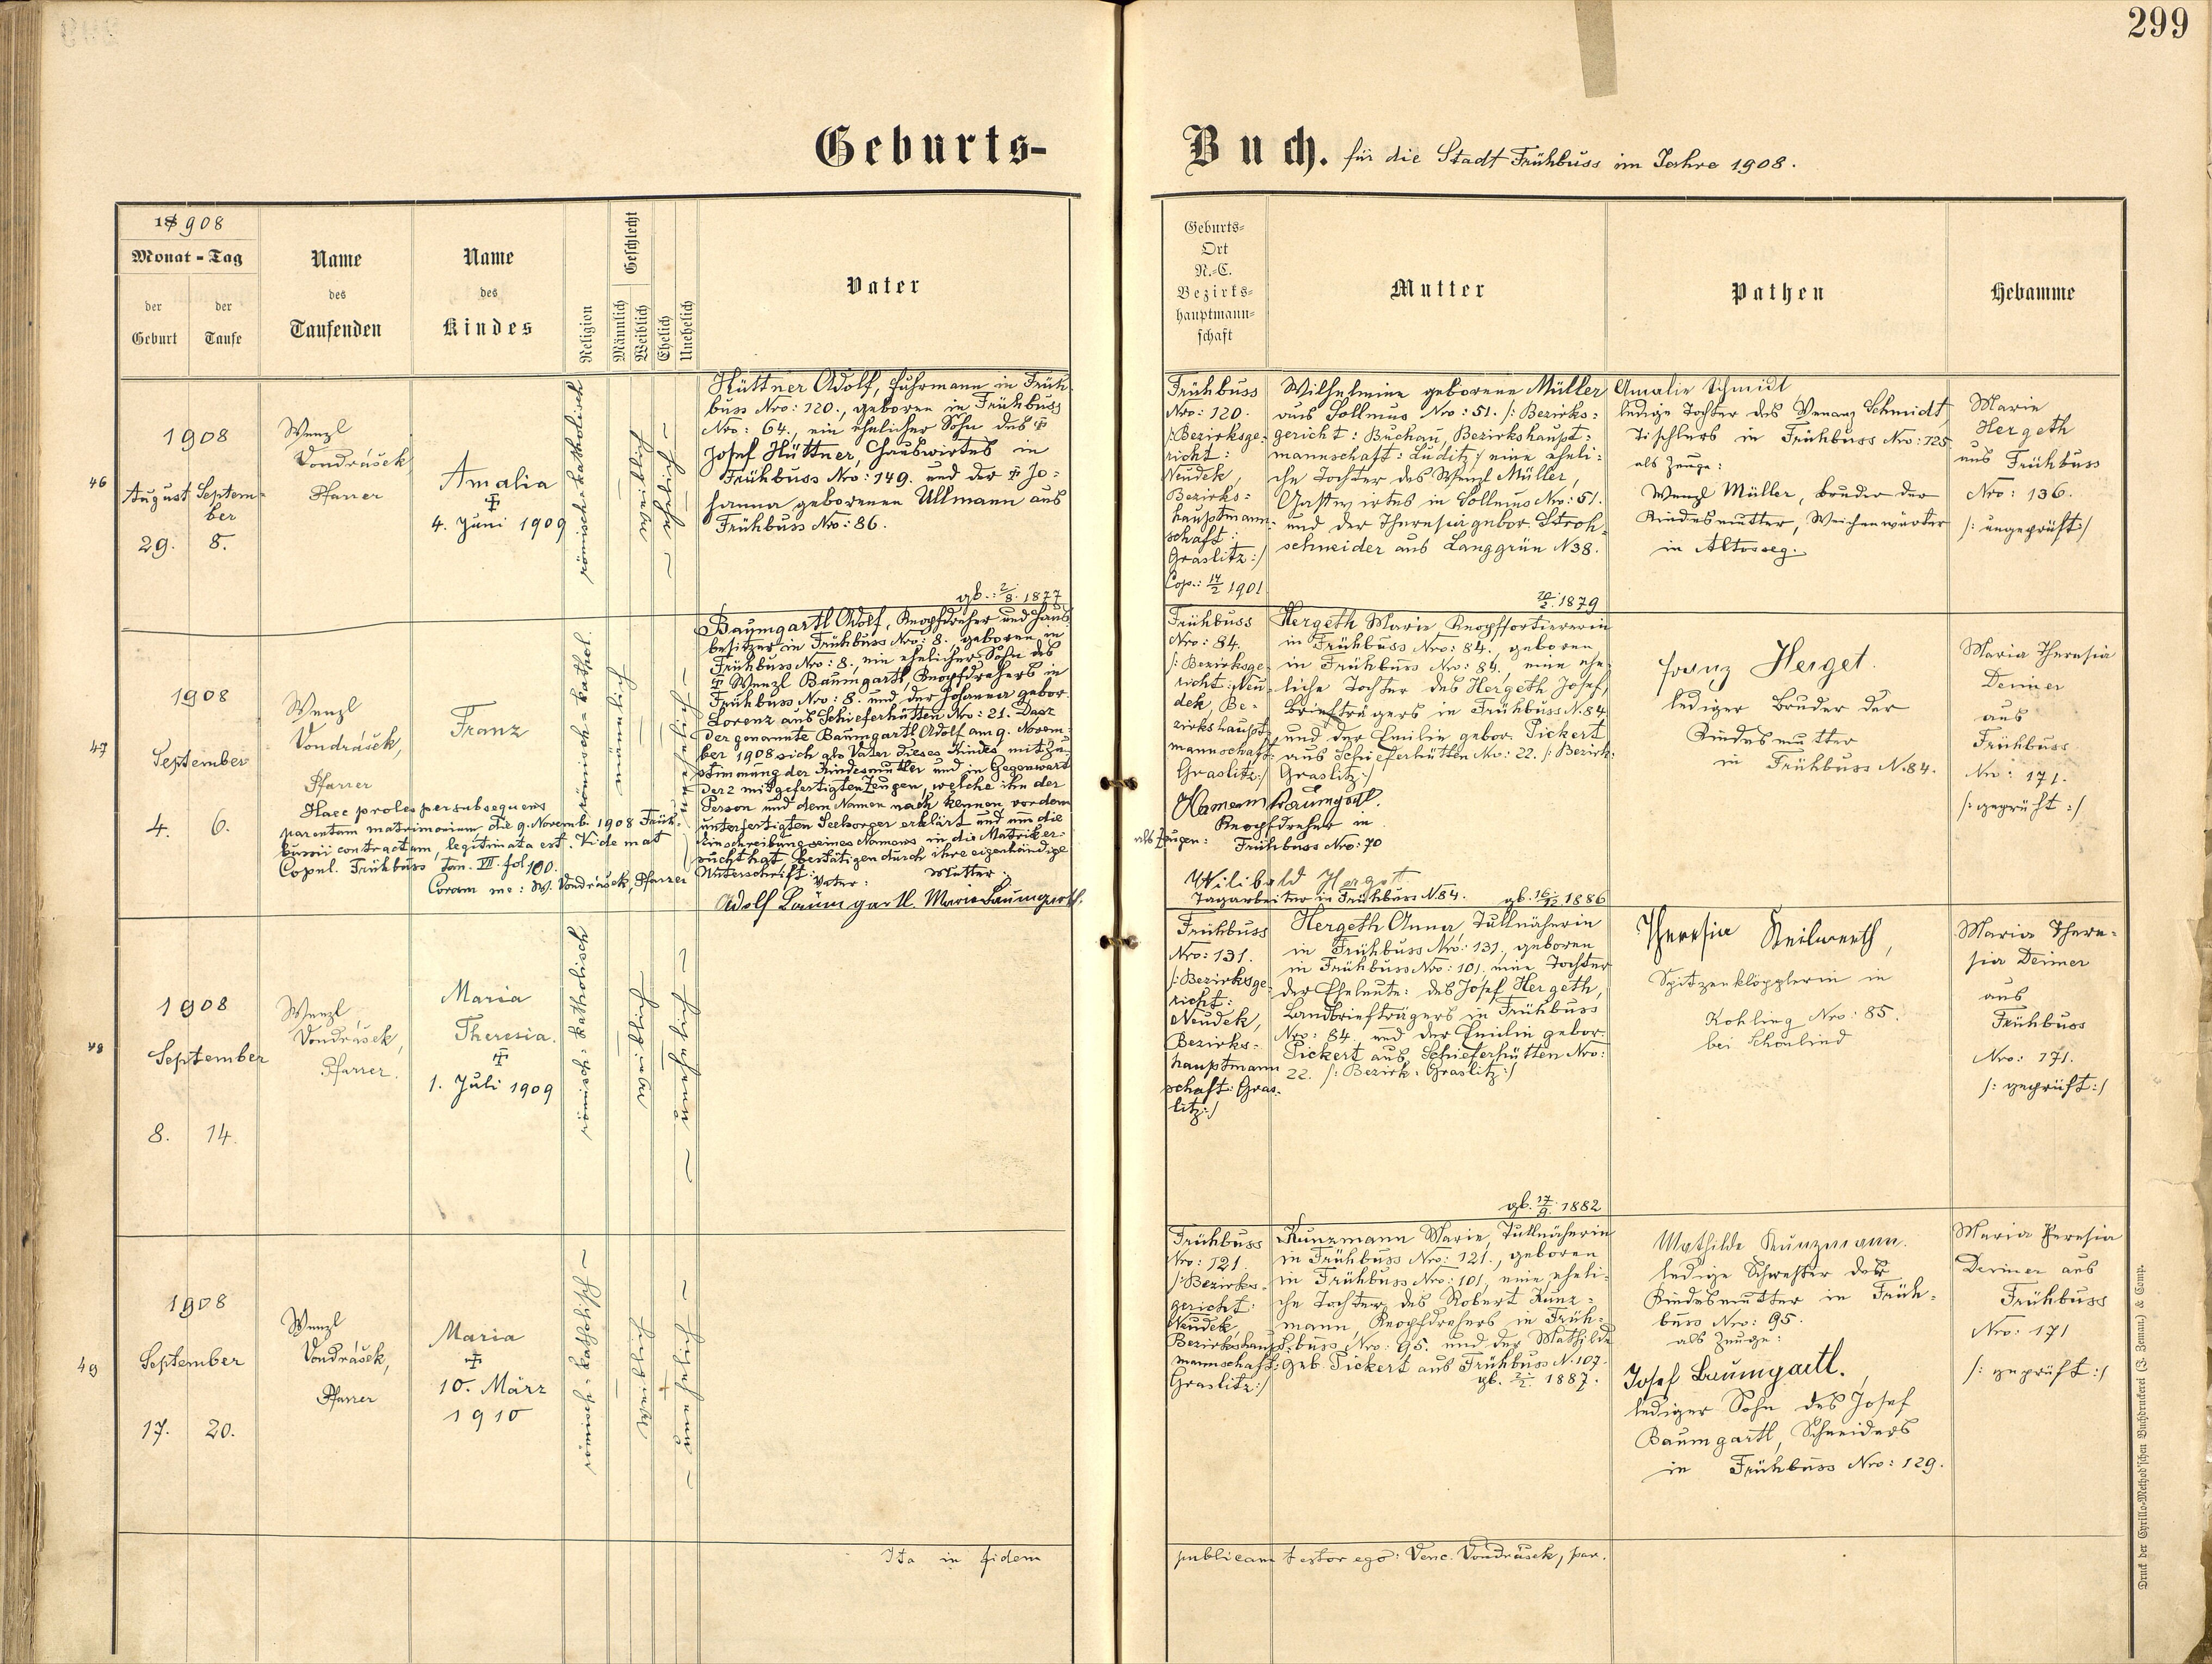 299
Geburts-
Buch. für die Stadt Frühbuss im Jahre 1908.
18908
Monat - Tag
der Geburt
der Taufe
Name
des
Taufenden
Name
des
Kindes
Religion
Geschlecht
Männlich
Weiblich
Ehelich
Unehelich
Vater
Geburts-
Ort
N.-C.
Bezirks-
hauptmann-
schaft
Mutter
Pathen
Hebamme
46
1908
August
29.
Septem-
ber
8.
Wenzl
Vondrásek
Pfarrer
Amalia
4. Juni 1909
römisch=katholisch
weiblich
ehelich
Hüttner Adolf, Fuhrmann in Früh-
buss Nro: 120., geboren in Frühbuss
Nro: 64., ein ehelicher Sohn des
Josef Hüttner, Hauswirtes in
Frühbuss Nro: 149. und der Jo=
hanna geborenen Ullmann aus
Frühbuss Nro: 86.
Frühbuss
Nro: 120.
/: Bezirksge-
richt:
Neudek,
Bezirks=
hauptmann-
schaft:
Graslitz:/
Cop.: 17/2 1901
Wilhelmine geborene Müller
aus Sollmus Nro: 51. /: Bezirks=
gericht: Buchau, Bezirkshaupt=
mannschaft: Luditz:/ eine eheli=
che Tochter des Wenzl Müller,
Gastwirtes in Sollmus Nro: 51.
und der Theresia gebor. Stroh-
schneider aus Langgrün N38.
Amalie Schmidt
ledige Tochter des Venanz Schmidt,
Tischlers in Frühbuss Nro: 125
als Zeuge:
Wenzl Müller, Bruder der
Kindesmutter, Weichenwärter
in Altrossg.
Marie
Hergeth
aus Frühbuss
Nro: 136.
/: ungeprüft:/
47
1908
September
4.
6.
Wenzl
Vondrásek,
Pfarrer
Franz
römisch=kathol.
männlich
unehelich
Haec proles per subsequens
parentum matrimonium die 9. Novemb. 1908 Früh-
bussii contractum, legitimata est. Vide mat
Copul. Frühbuss tom. VII. fol 100.
Coram me: W. Vondrásek, Pfarrer
gb.: 2/8. 1877
Baumgartl Adolf, Knopfdreher und Haus-
besitzer in Frühbuss Nro: 8. geboren in
Frühbuss Nro: 8., ein ehelicher Sohn des
Wenzl Baumgartl, Knopfdrehers in
Frühbuss Nro: 8. und der Johanna gebor.
Lorenz aus Schieferhütten Nro: 21. Dass
der genannte Baumgartl Adolf am 9. Novem-
ber 1908 sich als Vater dieses Kindes mit Zu-
stimmung der Kindesmutter und in Gegenwart
der 2 mitgefertigten Zeugen, welche ihn der
Person und dem Namen nach kennen vor dem
unterfertigten Seelsorger erklärt und um die
Einschreibung seines Namens in die Matrik er-
sucht hat, bestätigen durch ihre eigenhändige
Unterschrift: Vater: Mutter:
Adolf Baumgartl. Marie Baumgartl.
Frühbuss
Nro: 84.
/: Bezirksge-
richt: Neu-
dek, Be-
zirkshaupt-
mannschaft:
Graslitz:/
20/2. 1879
Hergeth Marie Knopfsortiererin
in Frühbuss Nro: 84., geboren
in Frühbuss Nro: 84, eine ehe-
liche Tochter des Hergeth Josef,
Briefträgers in Frühbuss N.84
und der Emilie gebor. Pickert
aus Schieferhütten Nro: 22. /: Bezirk:
Graslitz:/
Hamann Baumgartl.
Knopfdreher in
als Zeugen: Frühbuss Nro: 70
Wilibald Herget
Tagarbeiter in Frühbuss N.84.
Franz Herget.
lediger Bruder der
Kindesmutter
in Frühbuss N.84.
Maria Theresia
Deimer
aus
Frühbuss
Nro: 171.
/: geprüft:/
48
1908
September
8.
14.
Wenzl
Vondrásek,
Pfarrer.
Maria
Theresia.
1. Juli 1909
römisch=katholisch
weiblich
unehelich
Frühbuss
Nro: 131.
/: Bezirksge-
richt:
Neudek,
Bezirks=
hauptmann
schaft: Gras-
litz:/
gb. 16/12 1886
Hergeth Anna, Tullnäherin
in Frühbuss Nro: 131, geboren
in Frühbuss Nro: 101, eine Tochter
der Eheleute: des Josef Hergeth,
Landbriefträgers in Frühbuss
Nro: 84. und der Emilie gebor.
Pickert aus Schieferhütten Nro:
22. /: Bezirk: Graslitz:/
Theresia Keilwerth,
Spitzenklöpplerin in
Kohling Nro: 85.
bei Schönlind
Maria There-
sia Deimer
aus
Frühbuss
Nro: 171.
/: geprüft:/
49
1908
September
17.
20.
Wenzl
Vondrásek,
Pfarrer
Maria
10. März
1910
römisch=katholisch
weiblich
unehelich
Frühbuss
Nro: 121
/: Bezirks-
gericht:
Neudek,
Bezirkshaupt-
mannschaft:
Graslitz:/
gb. 17/9. 1882
Kunzmann Marie, Tullnäherin
in Frühbuss Nro: 121., geboren
in Frühbuss Nro: 101, eine eheli-
che Tochter des Robert Kunz=
mann, Knopfdrehers in Früh=
buss Nro: 95. und der Mathilde
geb. Pickert aus Frühbuss N.107.
gb. 2/2. 1887.
Mathilde Kunzmann.
ledige Schwester der
Kindesmutter in Früh-
buss Nro: 95.
als Zeuge:
Josef Baumgartl.,
lediger Sohn des Josef
Baumgartl, Schneiders
in Frühbuss Nro: 129.
Maria Theresia
Deimer aus
Frühbuss
Nro: 171
/: geprüft:/
Ita in fidem
publicam testor ego: Venc. Vondrásek, par.
Druck der Cyrillo-Method'schen Buchdruckerei (J. Zeman) & Comp.